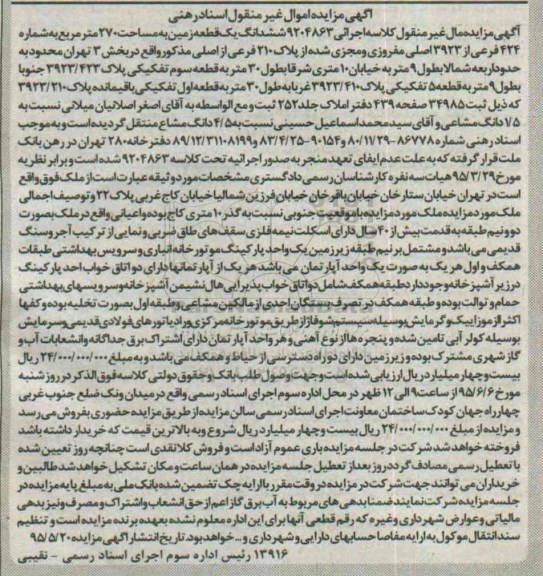 آگهی مزایده اموال غیر منقول اسناد رهنی
آگهی مزایده مال غیر منقول کلاسه اجرائی ۹۲۰۴۸۶۳ ششدانگ یک قطعه زمین به مساحت ۲۷۰ متر مربع به شماره
۴۲۴ فرعی از ۳۹۲۳ اصلی مفروزی و مجزی شده از پلاک ۲۱۰ فرعی از اصلی مذکور واقع در بخش ۳ تهران محدود به
حدود اربعه شمالا بطول ۹ متر به خیابان ۱۰ متری شرقا بطول ۳۰ متر به قطعه سوم تفکیکی پلاک ۳۹۲۳/۴۲۳ جنوبا
بطول ۹ متر به قطعه ۵ تفکیکی پلاک ۳۹۲۳/۴۱۰ غربا به طول ۳۰ متر به قطعه اول تفکیکی باقیمانده پلاک ۳۹۲۳/۲۱۰
که ذیل ثبت ۳۴۹۸۵ صفحه ۴۳۹ دفتر املاک جلد ۲۵۲ ثبت و مع الواسطه به آقای اصغر اصلانیان میلانی نسبت به
۱/۵ دانگ مشاعی و آقای سید محمد اسماعیل حسینی نسبت به ۴/۵ دانگ مشاع منتقل گردیده است و به موجب
اسناد رهنی شماره ۸۶۷۷۸-۸۰/۱۱/۲۹ و ۹۰۱۵۴-۸۳/۴/۲۵ و ۱۰۸۱۹۹-۸۹/۱۲/۳۱ دفترخانه ۲۸۰ تهران در رهن بانک
ملت قرار گرفته که به علت عدم ایفای تعهد منجر به صدور اجرائیه تحت کلاسه ۹۲۰۴۸۶۳ شده است و برابر نظریه
مورخ ۹۵/۳/۲۹ هیات سه نفره کارشناسان رسمی دادگستری مشخصات مورد وثیقه عبارت است از ملک فوق واقع
است در تهران خیابان ستارخان خیابان باقرخان خیابان فرزین شمالی خیابان کاج غربی پلاک ۲۲ و توصیف اجمالی
ملک مورد مزایده ملک مورد مزایده با موقعیت جنوبی نسبت به گذر ۱۰ متری کاج بوده و اعیانی واقع در ملک بصورت
دو و نیم طبقه به قدمت بیش از ۴۰ سال دارای اسکلت نیمه فلزی سقف های طاق ضربی و نمایی از ترکیب آجر و سنگ
قدیمی می باشد و مشتمل بر نیم طبقه زیرزمین یک واحد پارکینگ موتورخانه انباری و سرویس بهداشتی طبقات
همکف و اول هر یک به صورت یک واحد آپارتمان می باشد هر یک از آپارتمانها دارای دو اتاق خواب احد پارکینگ
در زیر آشپزخانه وجود دارد طبقه همکف شامل دو اتاق خواب پذیرایی هال نشیمن آشپزخانه و سرویسهای بهداشتی
حمام و توالت بوده و طبقه همکف در تصرف بستگان احدی از مالکین مشاعی و طبقه اول بصورت تخلیه بوده و کفها
اکثرا از موزاییک و گرمایش بوسیله سیستم شوفاژ از طریق موتورخانه مرکزی و رادیاتورهای فولادی قدیمی و سرمایش
بوسیله کولر آبی تامین شده و پنجره ها از نوع آهنی و هر واحد آپارتمان دارای اشتراک برق جداگانه و انشعابات آب و
گاز شهری مشترک بوده و زیرزمین دارای دو راه دسترسی از حیاط و همکف می باشد و به مبلغ ۲۴/۰۰۰/۰۰۰/۰۰۰ ریال
بیست و چهار میلیارد ریال ارزیابی شده است و جهت وصول طلب بانک و حقوق دولتی کلاسه فوق الذکر در روز شنبه
مورخ ۹۵/۶/۶ از ساعت ۹ الی ۱۲ ظهر در محل اداره سوم اجرای اسناد رسمی واقع در میدان ونک ضلع جنوب غربی
چهارراه جهان کودک ساختمان معاونت اجرای اسناد رسمی سالن مزایده از طریق مزایده حضوری بفروش می رسد
و مزایده از مبلغ ۲۴/۰۰۰/۰۰۰/۰۰۰ ریال بیست و چهار میلیارد ریال شروع و به بالاترین قیمت که خریدار داشته باشد
فروخته خواهد شد شرکت در جلسه مزایده برای عموم آزاد است و فروش کلا نقدی است چنانچه روز تعیین شده
با تعطیل رسمی مصادف گردد روز بعد از تعطیل جلسه مزایده در همان ساعت و مکان تشکیل خواهد شد طالبین و
خریداران می توانند جهت شرکت در مزایده در وقت مقرر با ارایه چک تضمین شده بانک ملی به مبلغ پایه مزایده در
جلسه مزایده شرکت نمایند ضمنا بدهی های مربوط به آب برق گاز اعم از حق انشعاب و اشتراک و مصرف و نیز بدهی
مالیاتی و عوارض شهرداری و غیره که رقم قطعی آنها برای این اداره معلوم نشده بعهده برنده مزایده است و تنظیم
سند انتقال موکول به ارایه مفاصا حسابهای دارایی و شهرداری و ... خواهد بود. تاریخ انتشار آگهی مزایده ۹۵/۵/۲۰
۱۳۹۱۶ رئیس اداره سوم اجرای اسناد رسمی - نقیبی